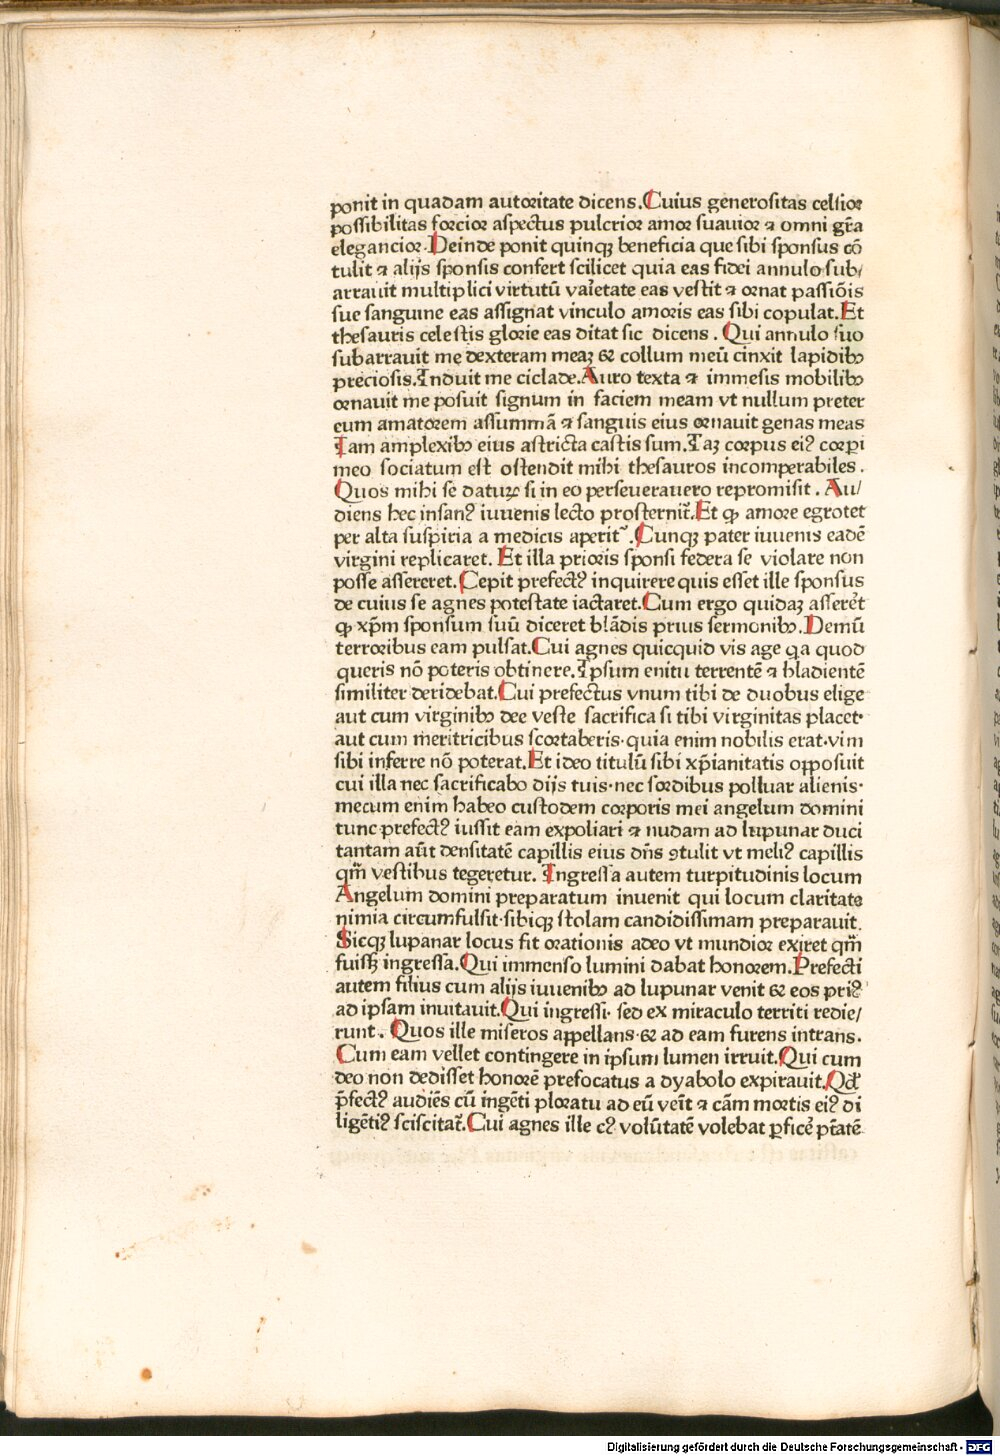 ponit in quadam autoritate dicens. Cuius generositas celsior
possibilitas forcior aspectus pulcrior amor suauior ⁊ omni gr̃a
elegancior. Deinde ponit quinqꝫ beneficia que sibi sponsus cō
tulit ⁊ alijs sponsis confert scilicet quia eas fidei annulo sub/
arrauit multiplici virtutū varietate eas vestit ⁊ ornat passiōis
sue sanguine eas assignat vinculo amoris eas sibi copulat. Et
thesauris celestis glorie eas ditat sic dicens. Qui annulo suo
subarrauit me dexteram meaꝫ & collum meū cinxit lapidibꝰ
preciosis. Induit me ciclade. Auro texta ⁊ immesis mobilibꝰ
ornauit me posuit signum in faciem meam vt nullum preter
eum amatorem assummā ⁊ sanguis eius ornauit genas meas
Iam amplexibꝰ eius astricta castis sum. Iaꝫ corpus eiꝰ corpi
meo sociatum est ostendit mihi thesauros incomperabiles.
Quos mihi se daturꝝ si in eo perseuerauero repromisit. Au/
diens hec insanꝰ iuuenis lecto prosternit̃. Et ꝙ amore egrotet
per alta suspiria a medicis aperit᷑. Cunqꝫ pater iuuenis eadē
virgini replicaret. Et illa prioris sponsi federa se violare non
posse assereret. Cepit prefectꝰ inquirere quis esset ille sponsus
de cuius se agnes potestate iactaret. Cum ergo quidaꝫ asserēt
ꝙ xp̄m sponsum suū diceret blādis prius sermonibꝰ. Demū
terroribus eam pulsat. Cui agnes quicquid vis age qa quod
queris nō poteris obtinere. Ipsum enitu terrentē ⁊ bladientē
similiter deridebat. Cui prefectus vnum tibi de duobus elige
aut cum virginibꝰ dee veste sacrifica si tibi virginitas placet·
aut cum meritricibus scortaberis· quia enim nobilis erat· vim
sibi inferre nō poterat. Et ideo titulū sibi xp̄ianitatis opposuit
cui illa nec sacrificabo dijs tuis· nec sordibus polluar alienis·
mecum enim habeo custodem corporis mei angelum domini
tunc prefectꝰ iussit eam expoliari ⁊ nudam ad lupunar duci
tantam aūt densitatē capillis eius dn̄s ꝯtulit vt meliꝰ capillis
qm̄ vestibus tegeretur. Ingressa autem turpitudinis locum
Angelum domini preparatum inuenit qui locum claritate
nimia circumfulsit· sibiqꝫ stolam candidissimam preparauit.
Sicqꝫ lupanar locus fit orationis adeo vt mundior exiret qm̄
fuisꝫ ingressa. Qui immenso lumini dabat honorem. Prefecti
autem filius cum alijs iuuenibꝰ ad lupunar venit & eos priꝰ
ad ipsam inuitauit. Qui ingressi· sed ex miraculo territi redie/
runt. Quos ille miseros appellans· & ad eam furens intrans.
Cum eam vellet contingere in ipsum lumen irruit. Qui cum
deo non dedisset honorē prefocatus a dyabolo expirauit. Qđ
p̄fectꝰ audiēs cū ingēti ploratu ad eū veīt ⁊ cām mortis eiꝰ di
ligētiꝰ sciscitat̃. Cui agnes ille cꝰ volūtatē volebat ꝑficē ptātē
Digitalisierung gefördert durch die Deutsche Forschungsgemeinschaft - DFG